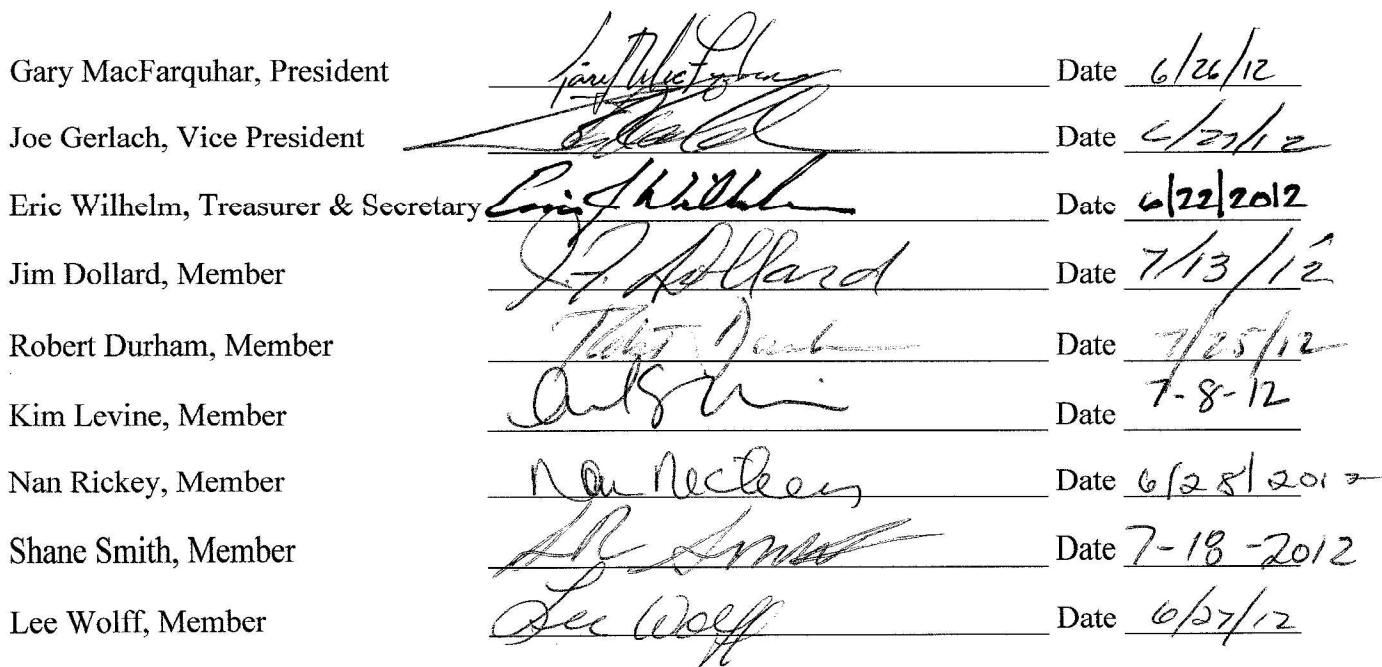 Gary MacFarquhar, President Date 6/26/12
Joe Gerlach, Vice President Date 6/27/12
Eric Wilhelm, Treasurer & Secretary Eric J Wilhelm Date 6/22/2012
Jim Dollard, Member J.F. Dollard Date 7/13/12
Robert Durham, Member Date 7/25/12
Kim Levine, Member Date 7-8-12
Nan Rickey, Member Date 6/28/2012
Shane Smith, Member Date 7-18-2012
Lee Wolff, Member Lee Wolff Date 6/27/12